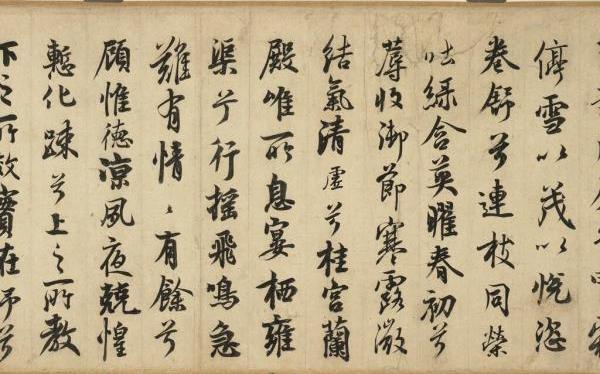 停雪以茂以悅恣
卷舒兮連枝同榮
吐綠含英曜春初兮
蓐收御節寒露微
結氣清虛兮桂宮蘭
殿唯所息宴栖雍
渠兮行搖飛鳴急
難有情〻有餘兮
顧惟德涼夙夜兢惶
慙化踈兮上之所教
下之所效實在予兮